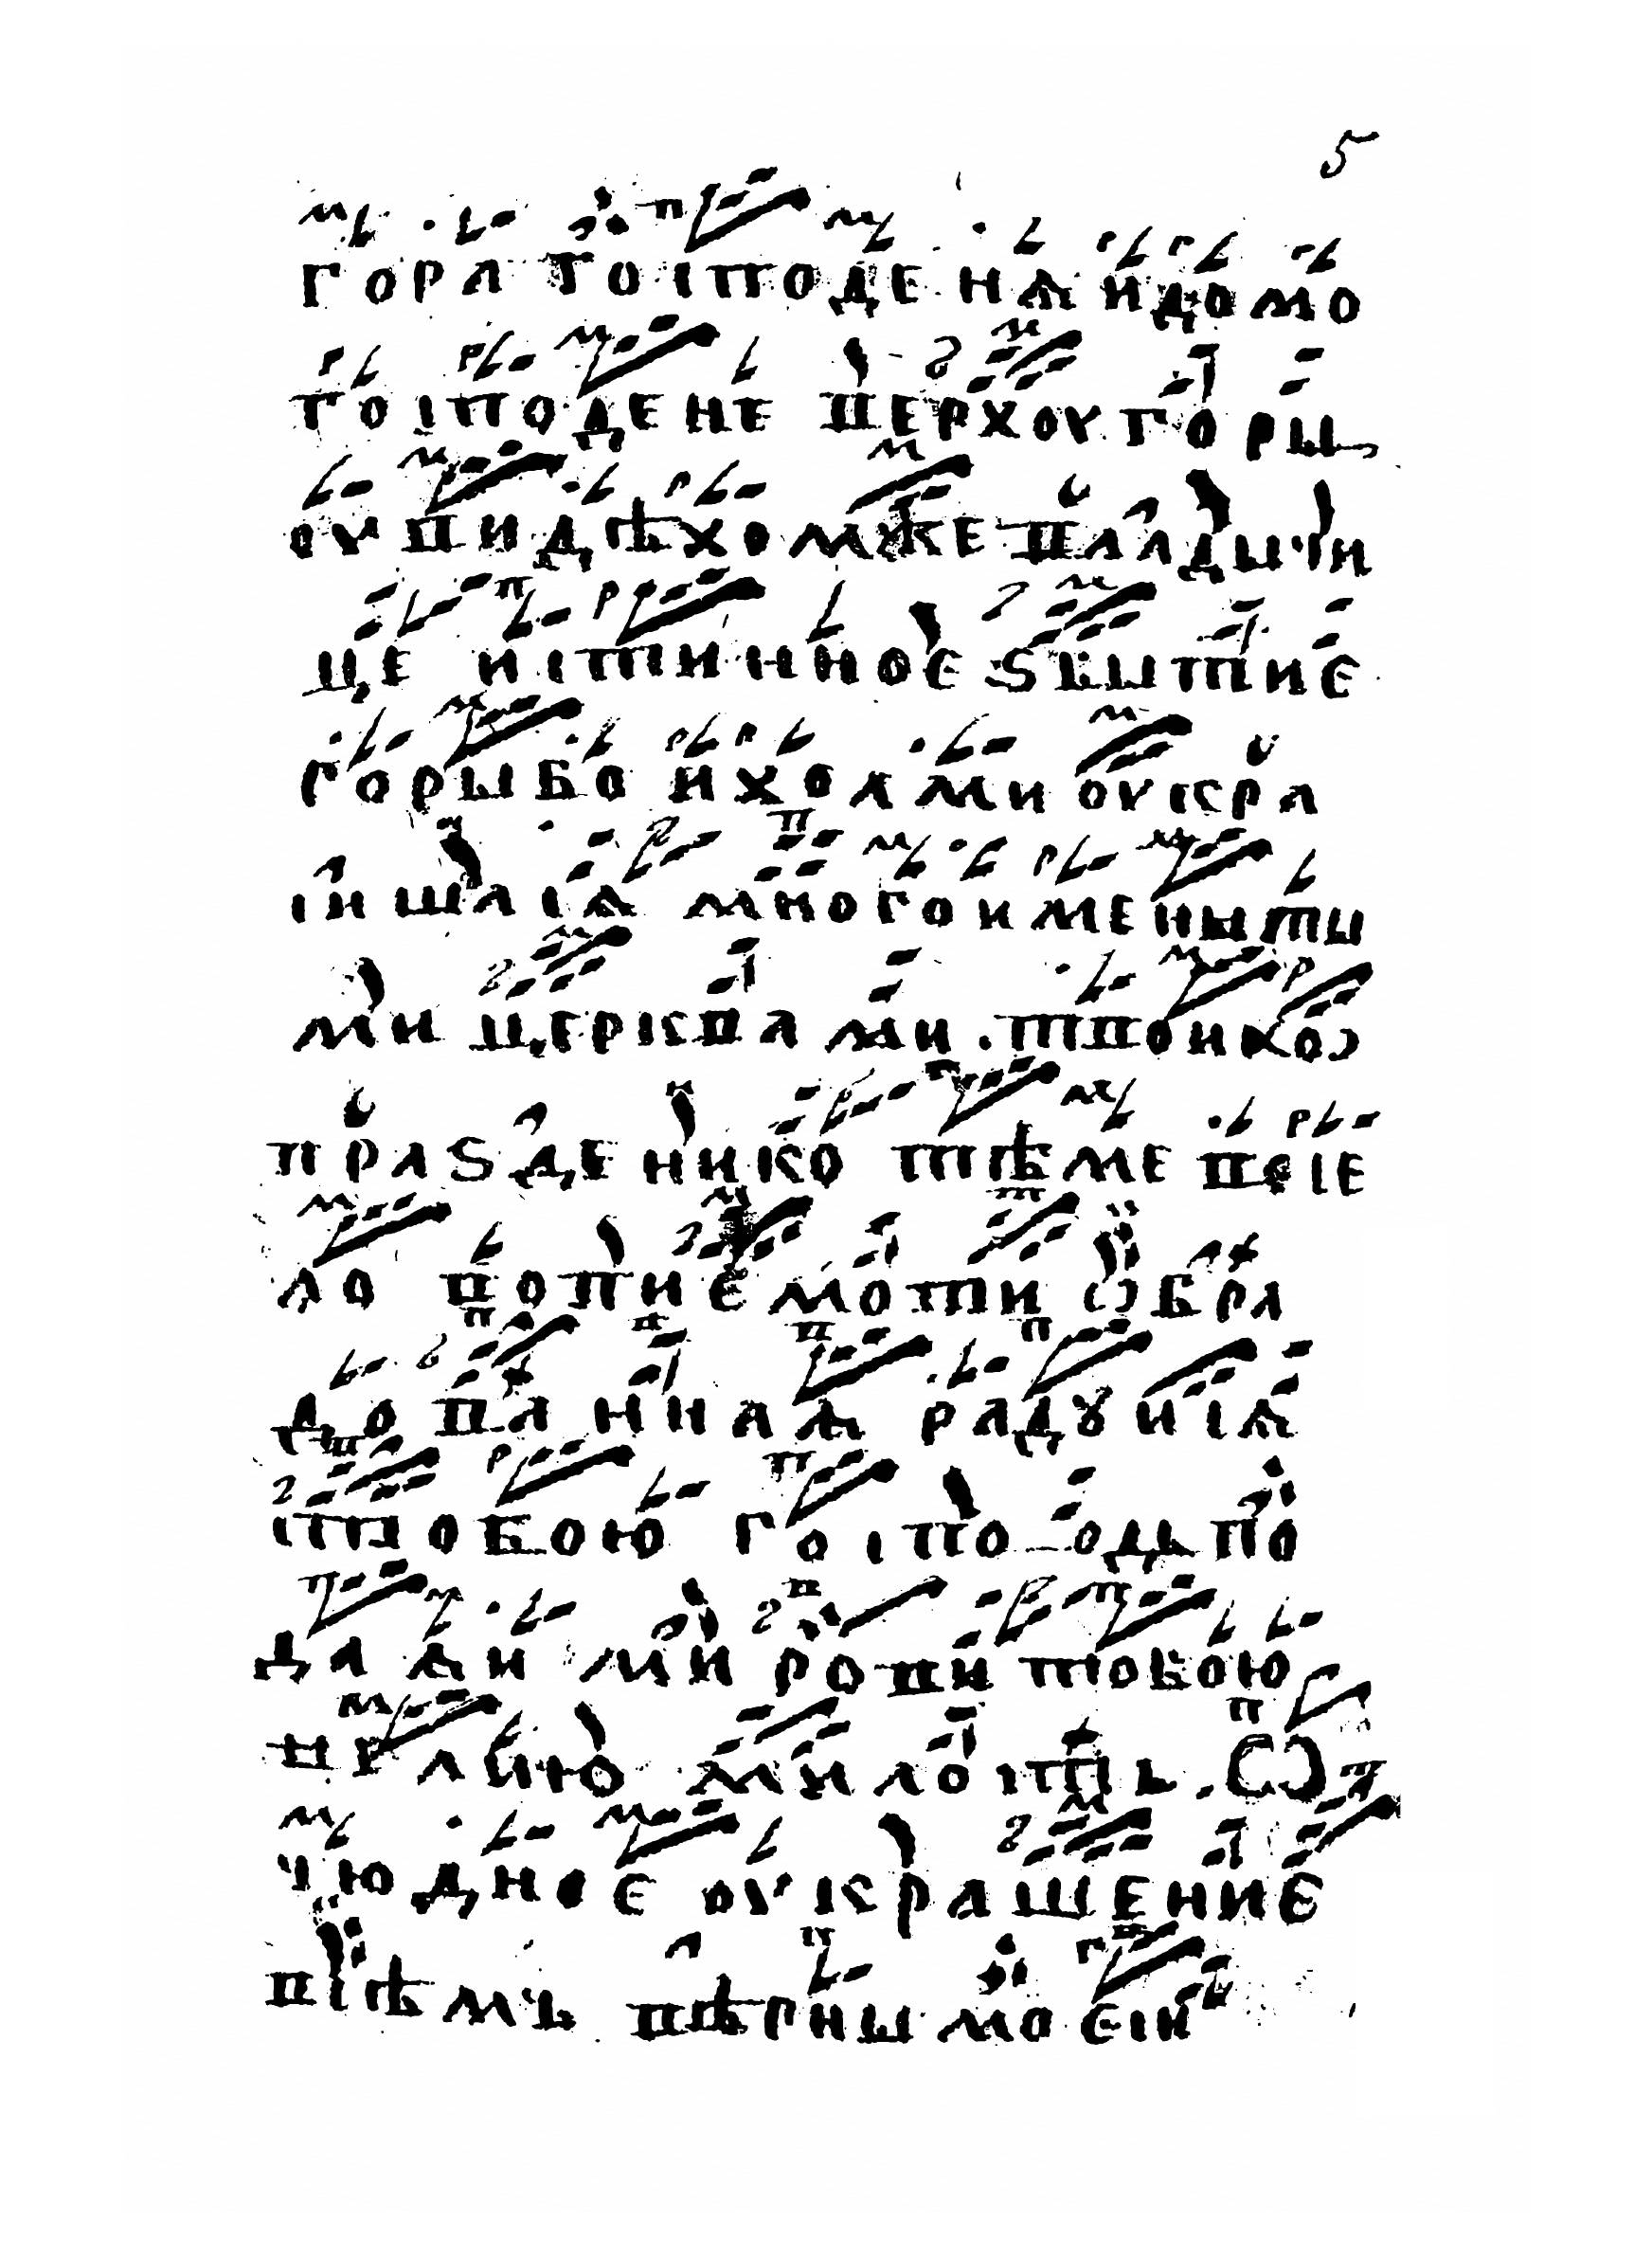 5
гора господенѧ и домо
господене верхоу горы
оу видѣхомже владычи
це истинное ѕбытие
горыбо и холми оукра
сишасѧ многоименыты
ми церквами . твои ко
праѕденико тѣме весе
ло вопиемоти ѡбра
довannаѧ радꙋисѧ
стобою господь по
даѧи мирови тобою
велию милость . Ѡ
чюдное оукрашение
всѣмъ вѣрнымо еси